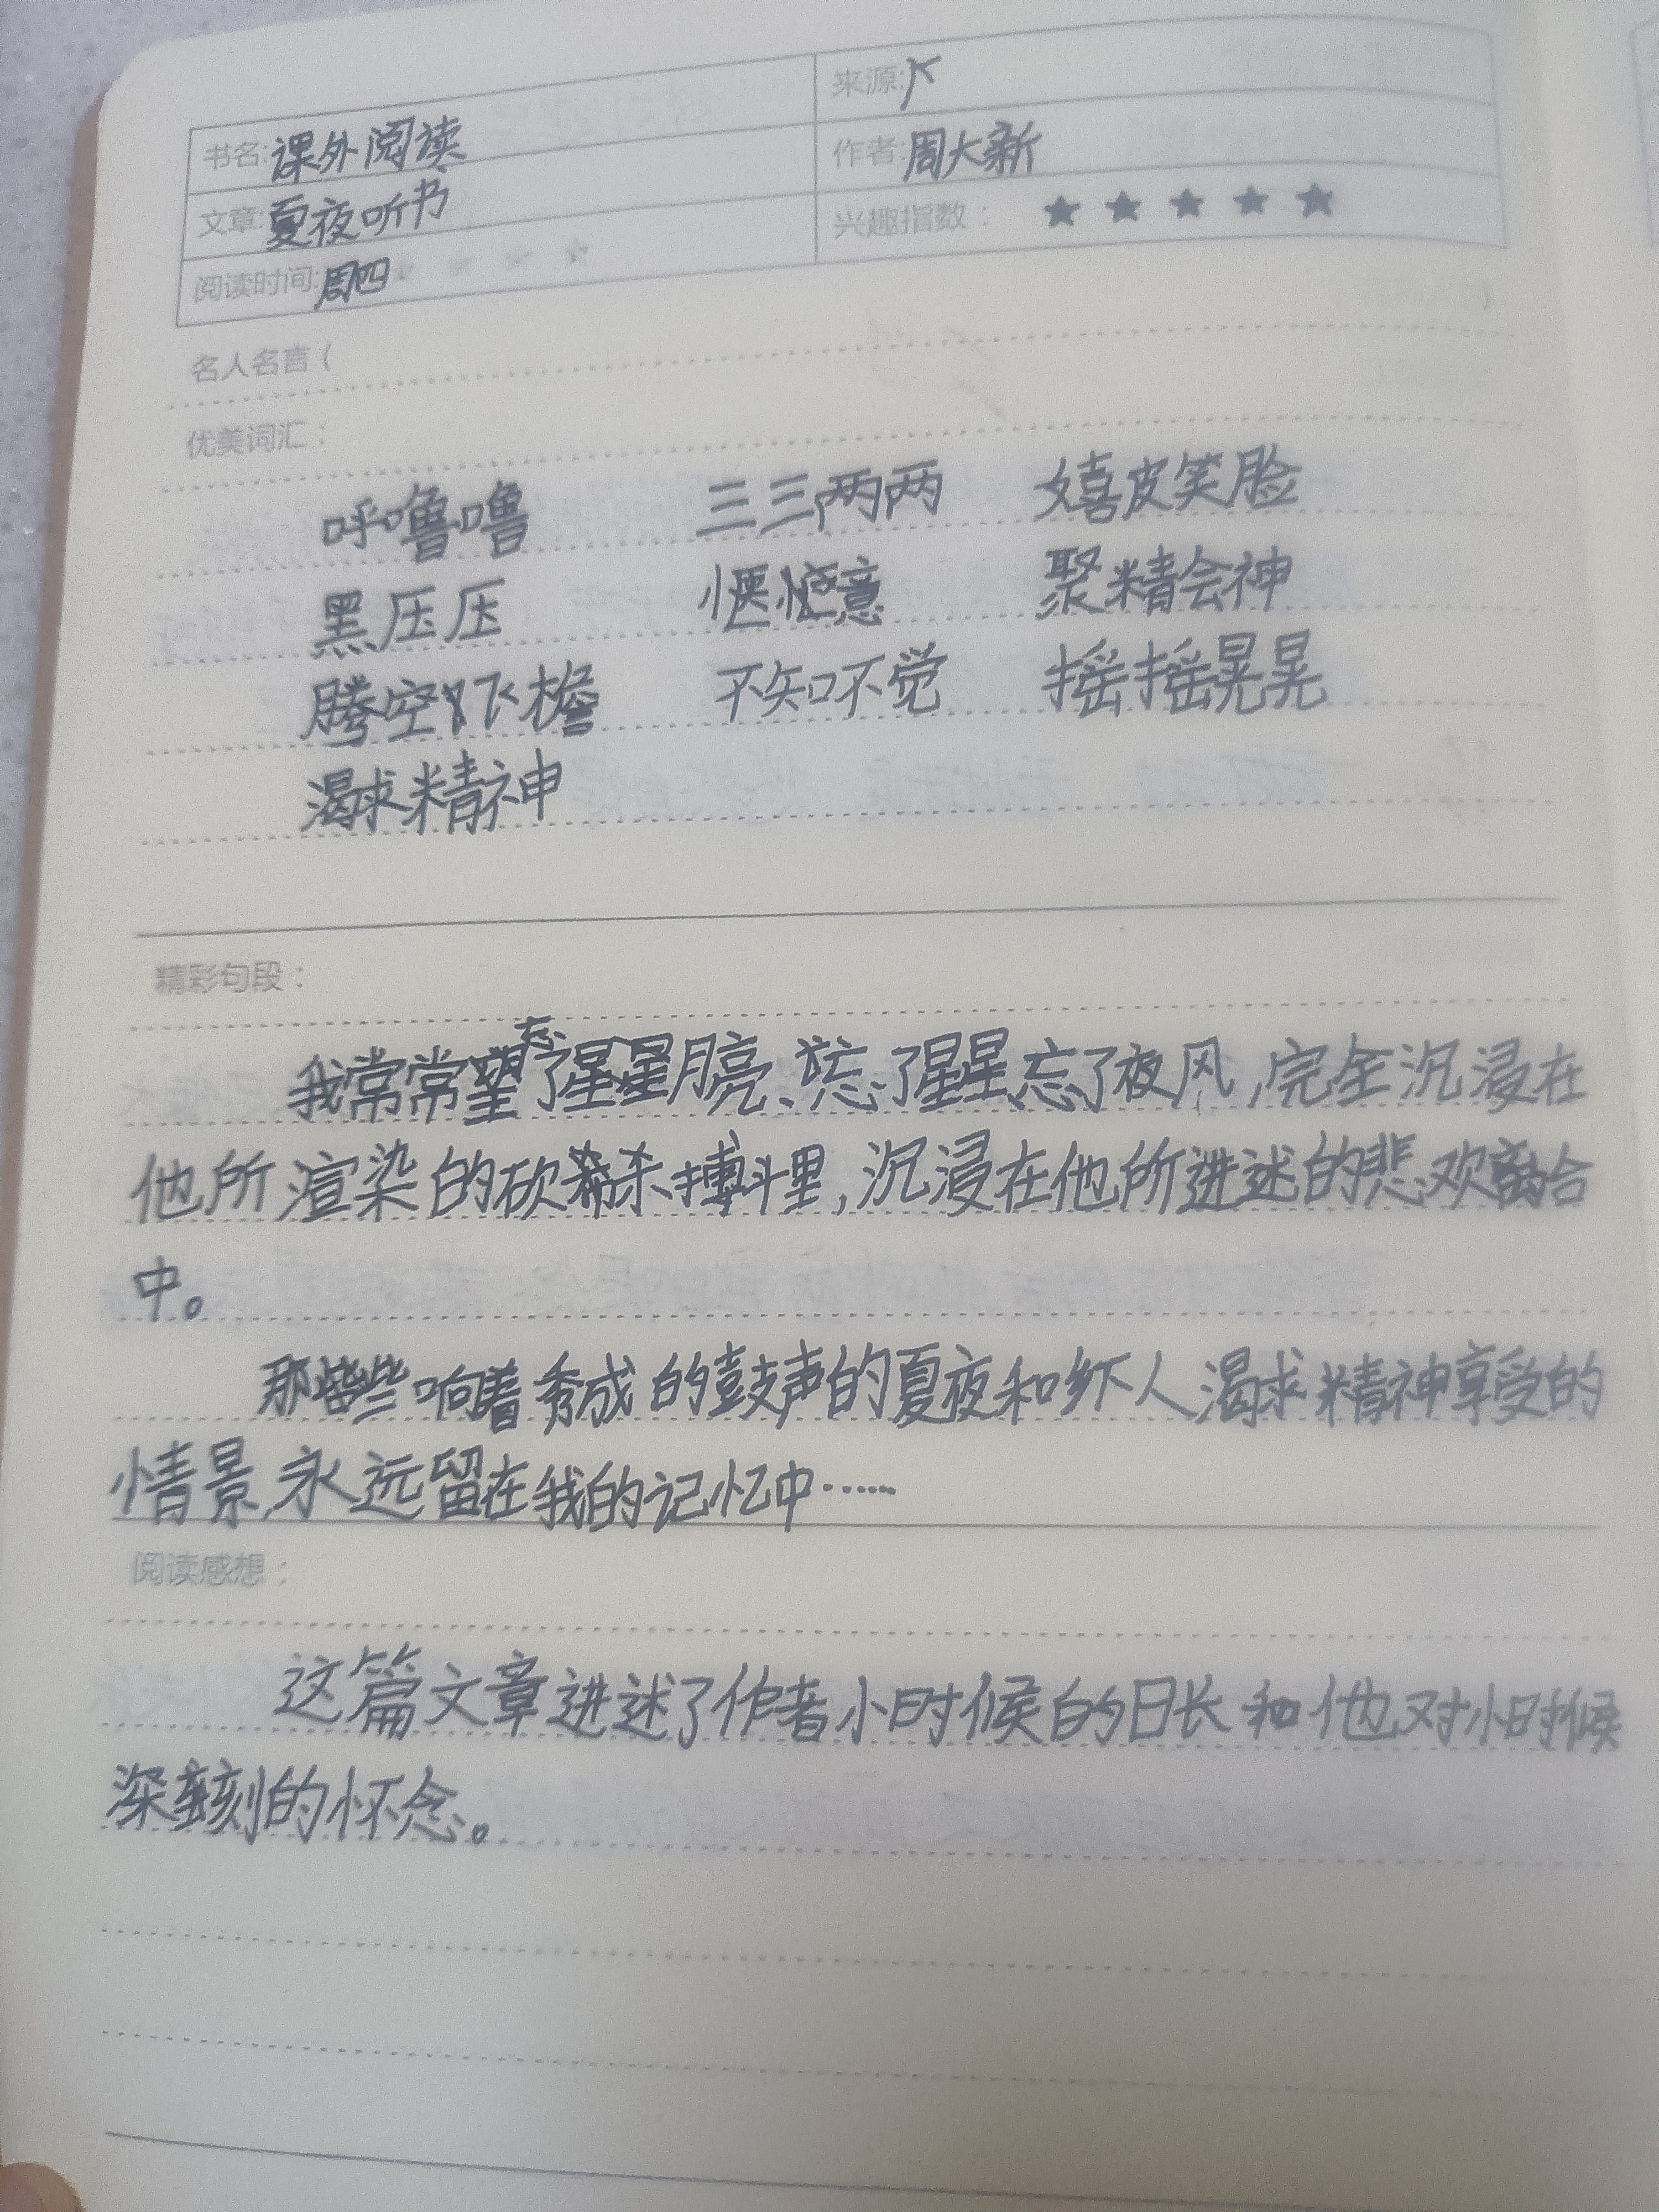 来源:
书名:课外阅读
作者:周大新
文章:夏夜听书
兴趣指数： ★ ★ ★ ★ ★
阅读时间:周四
名人名言(
优美词汇：
呼噜噜 三三两两 嬉皮笑脸
黑压压 惬意 聚精会神
腾空飞檐 不知不觉 摇摇晃晃
渴求精神
精彩句段：
我常常忘了月亮、忘了星星忘了夜风,完全沉浸在
他所渲染的砍杀搏斗里,沉浸在他所进述的悲欢离合
中。
那些响着秀成的鼓声的夏夜和乡下人渴求精神享受的
情景,永远留在我的记忆中……
阅读感想：
这篇文章进述了作者小时候的日长和他对小时候
深刻的怀念。